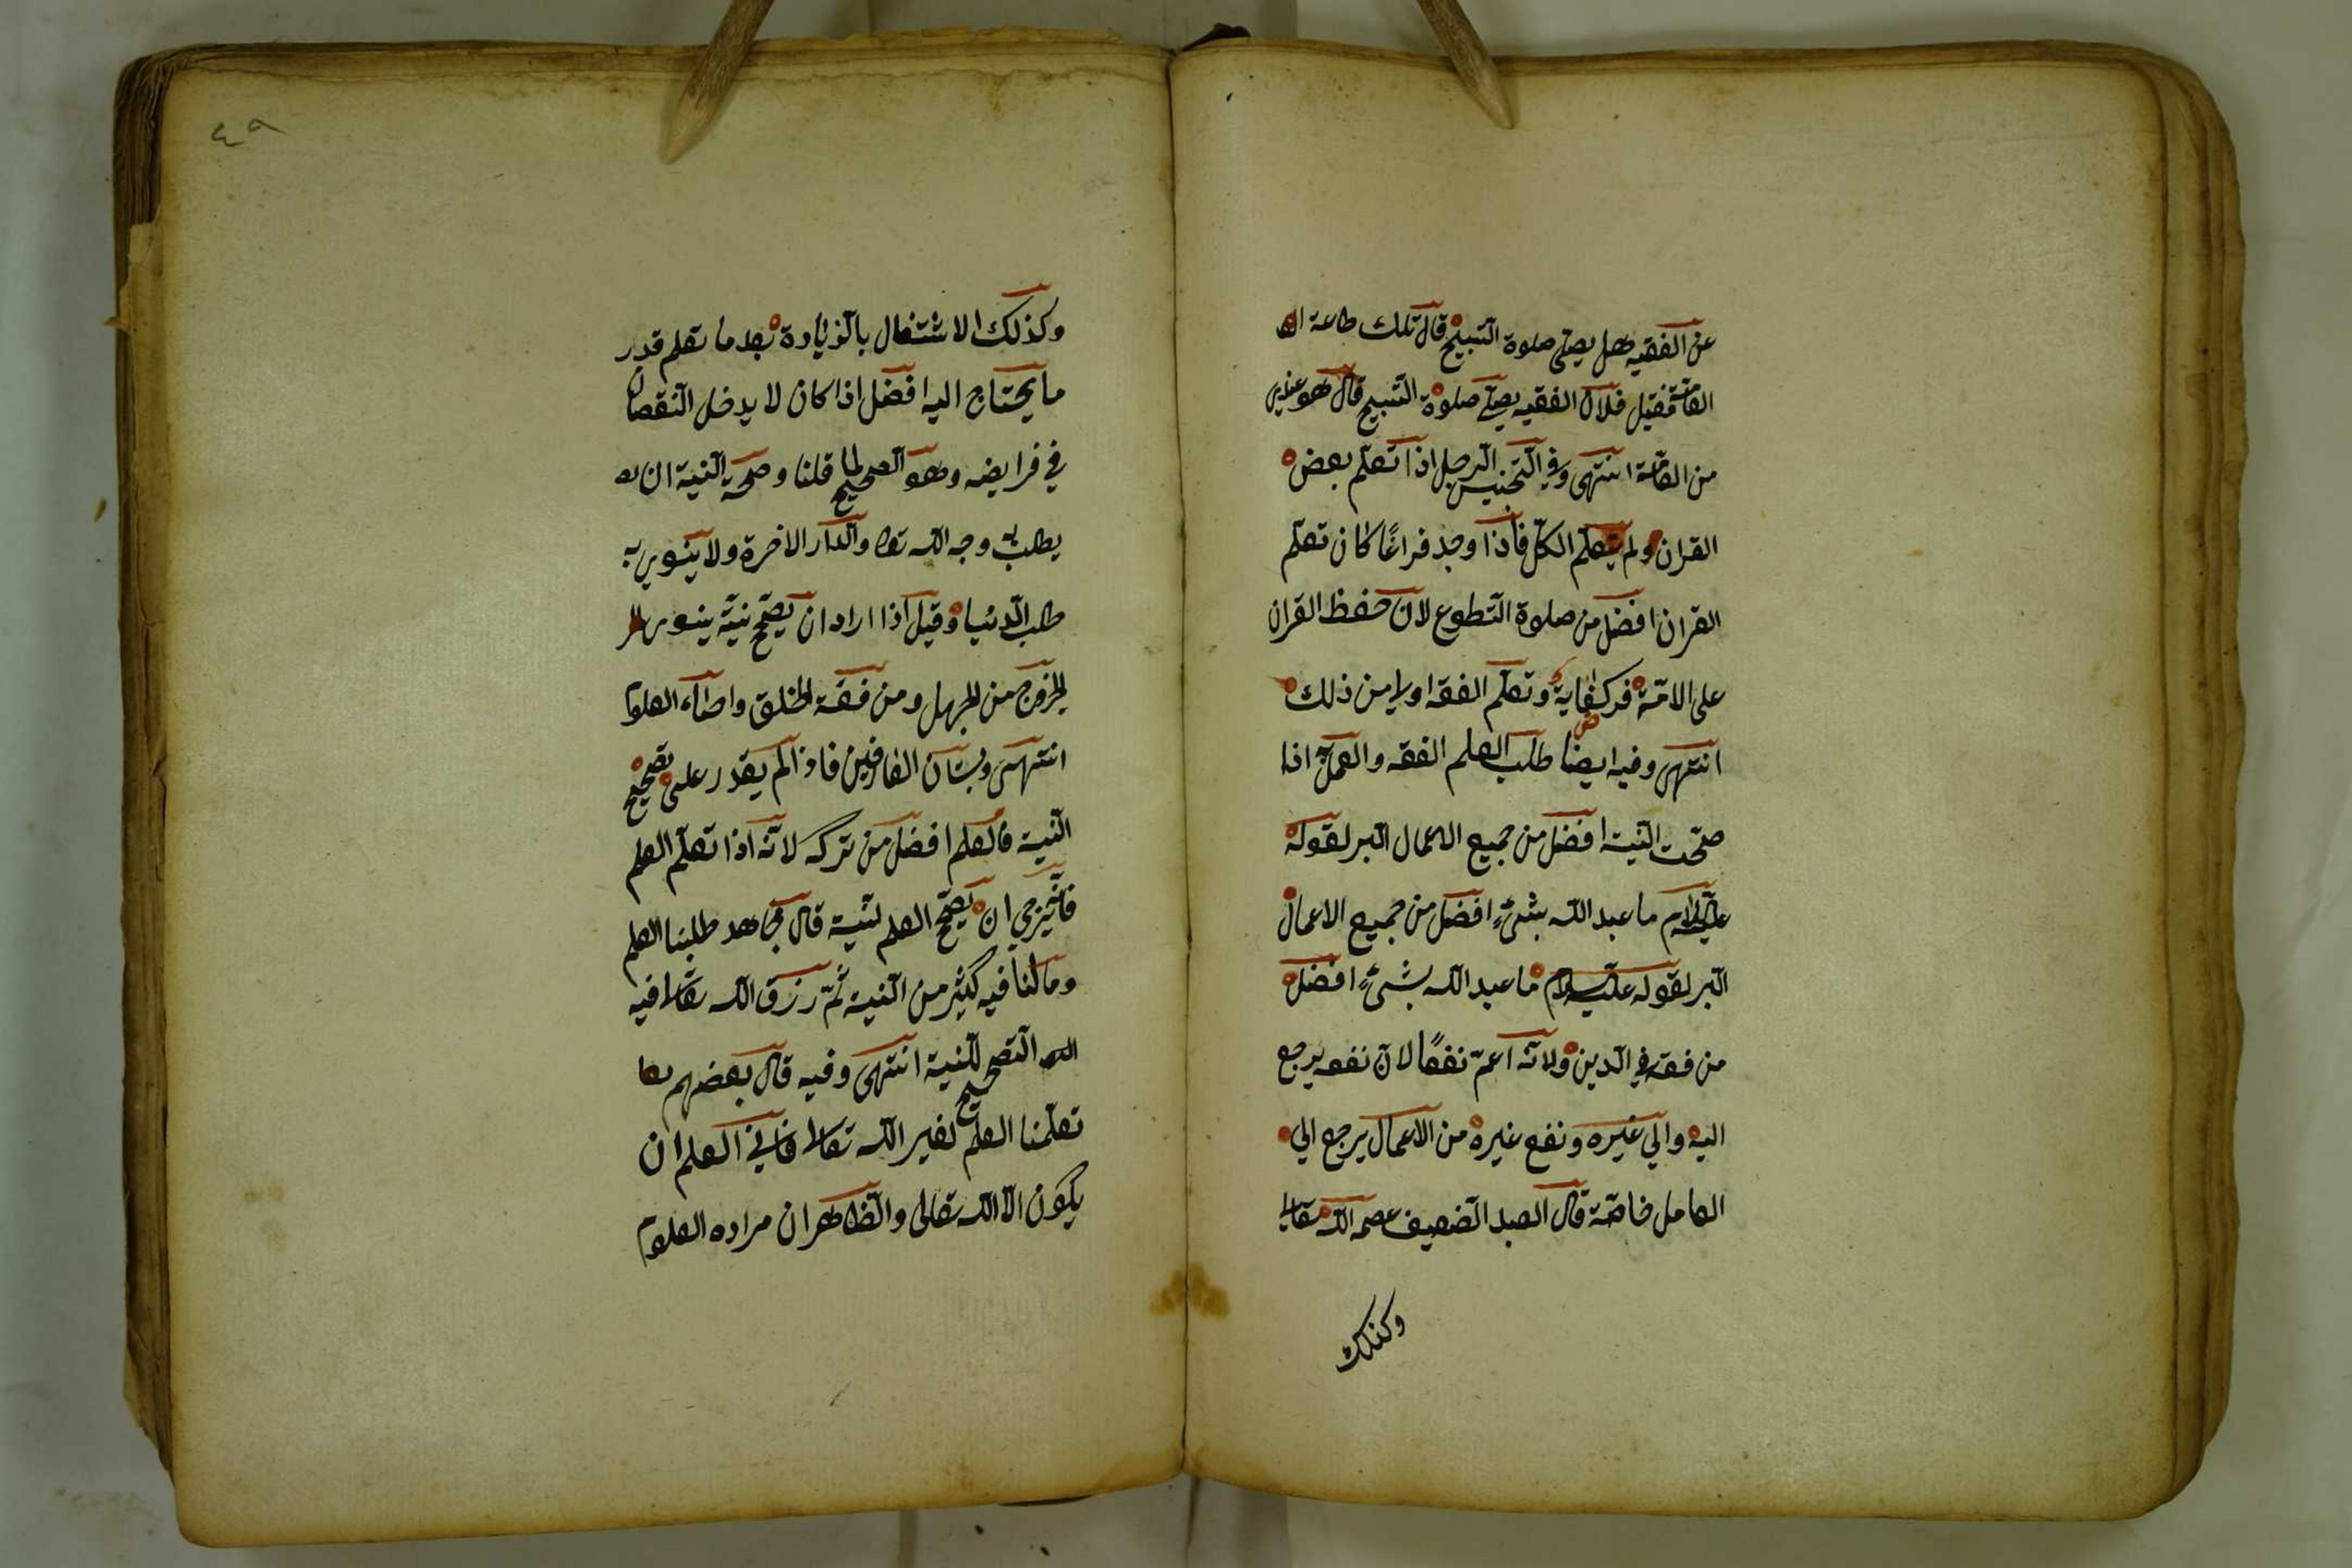 عن الفقيه هل يصلي صلوة التسبيح قال تلك طاعة
العامة فقيل فلان الفقيه يصلي صلوة التسبيح قال هو عندي
من العامة انتهى وفي التجنيس الرجل اذا تعلم بعض
القران ولم يتعلم الكل فاذا وجد فراغًا كان تعلم
القران افضل من صلوة التطوع لان حفظ القران
على الامة فرض كفاية وتعلم الفقه اولى من ذلك
انتهى وفيه ايضا طلب العلم الفقه والعمل اذا
صحت النية افضل من جميع الاعمال البر لقوله
عليه السلام ما عبد الله بشئٍ افضل من جميع الاعمال
البر لقوله عليه السلام ما عبد الله بشئٍ افضل
من فقه في الدين ولانه اعم نفعًا لان نفعه يرجع
اليه والي غيره ونفع غيره من الاعمال يرجع الي
العامل خاصة قال العبد الضعيف عصمه الله تعالى
وكذلك
٤٩
وكذلك الاشتغال بالزيادة بعد ما تعلم قدر
ما يحتاج اليه افضل اذا كان لا يدخل النقصان
في فرايضه وهو الصحيح لما قلنا وصحة النية ان
يطلب به وجه الله تعا والدار الاخرة ولا ينوي به
طلب الدنيا وقيل اذا اراد ان يصحح نيته ينوي
الخروج من الجهل ومن فقه الخلق واحياء العلوم
انتهى وبستان العارفين فاذا لم يقدر على تصحيح
النية فالعلم افضل من تركه لانه اذا تعلم العلم
ان يصحح العلم لنية قال مجاهد طلبنا العلم
وما لنا فيه كثير من النية ثم رزق الله تعالى فيه
التصحيح للنية انتهى وفيه قال بعضهم
تعلمنا العلم لغير الله تعالى فابي العلم ان
يكون الا الله تعالى والظاهر ان مراده العلوم